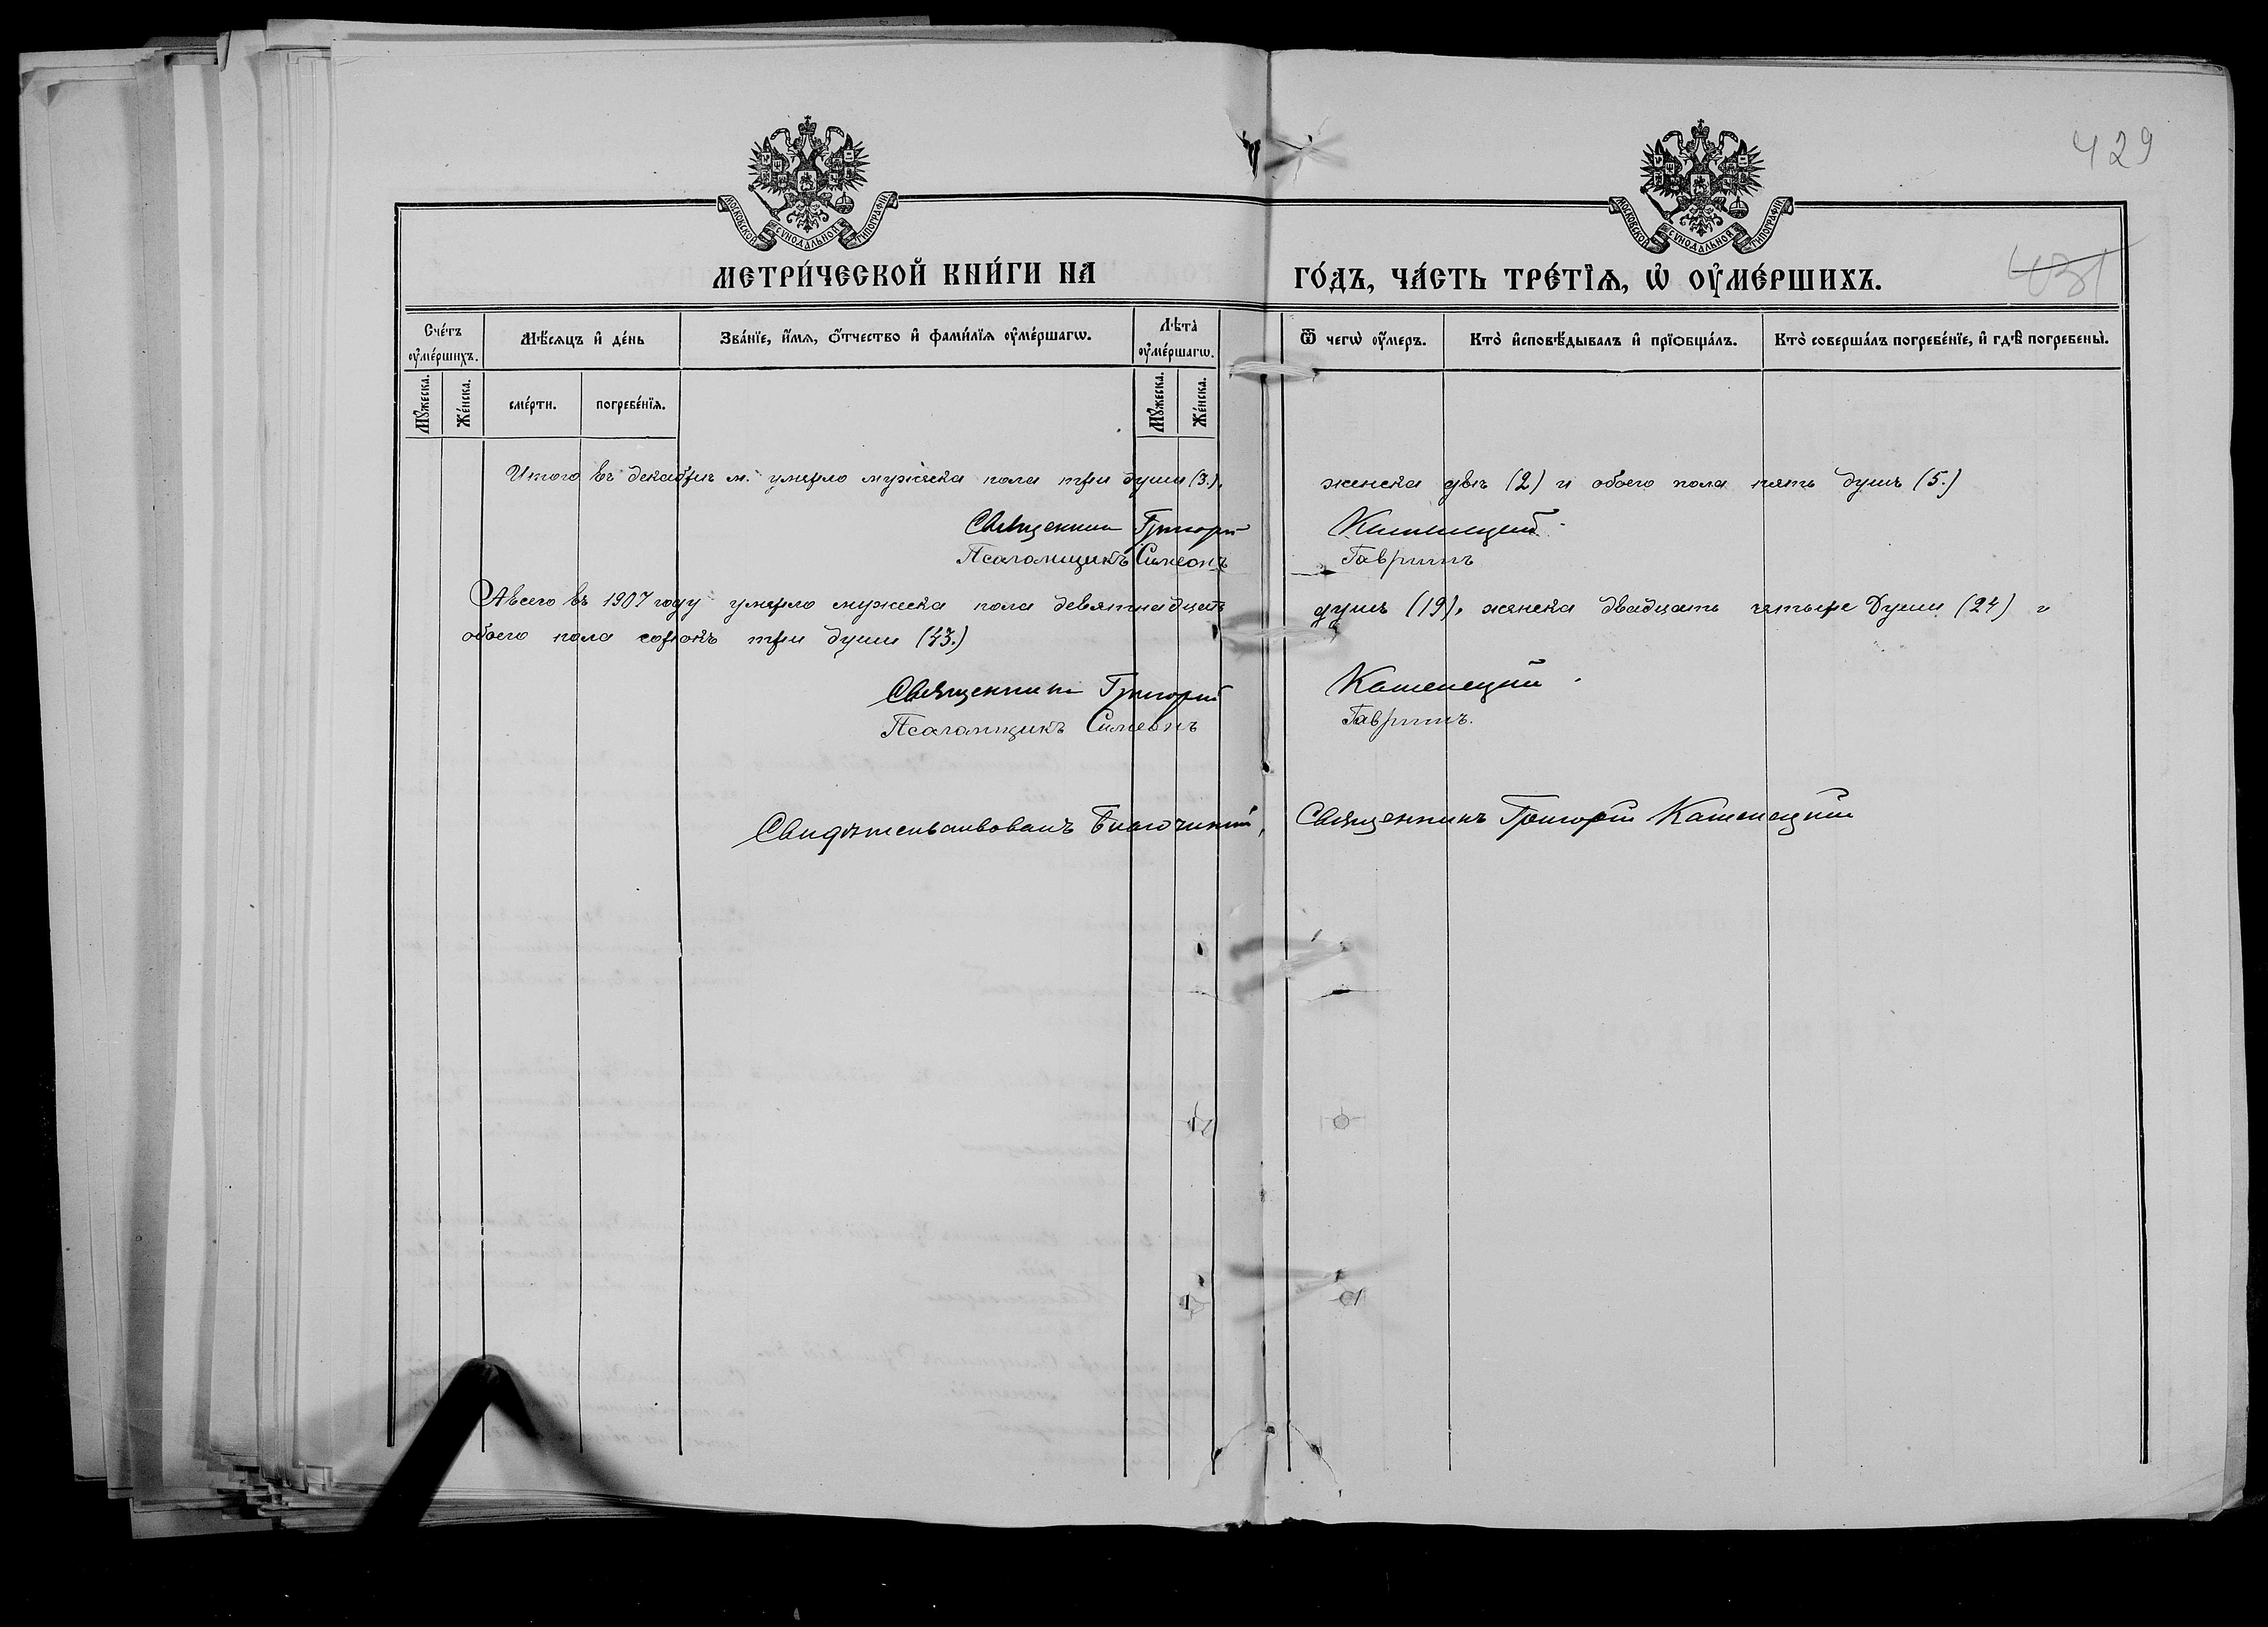 429
МОСКОВСКОЙ СУНОДАЛЬНОЙ ТИПОГРАФІИ
МОСКОВСКОЙ СУНОДАЛЬНОЙ ТИПОГРАФІИ
МЕТРИ́ЧЕСКОЙ КНИ́ГИ НА ГО́ДЪ, ЧА́СТЬ ТРЕ́ТІѦ, Ѡ҆ ОУ҆МЕ́РШИХЪ.
431
Сче́тъ оу҆ме́ршихъ. Мѣ́сяцъ и҆ де́нь Зва́нїе, и҆́мѧ, ѻ҆́тчество и҆ фами́лїѧ оу҆ме́ршагѡ. Лѣта̀ оу҆ме́ршагѡ. Ѿ чегѡ̀ оу҆́меръ. Кто̀ и҆сповѣ́дывалъ и҆ прїѡбща́лъ. Кто̀ соверша́лъ погребе́нїе, и҆ гдѣ̀ погребены̀.
Му́жеска. Же́нска. сме́рти. погребе́нїѧ. Му́жеска. Же́нска.
Итого въ декабрѣ м. умерло мужеска пола три души (3.), женска двѣ (2) и обоего пола пять душъ (5.)
Священникъ Григорій Каменецкій.
Псаломщикъ Симеонъ Гавришъ
А всего въ 1907 году умерло мужеска пола девятнадцать душъ (19), женска двадцать четыре души (24) и
обоего пола сорокъ три души (43.)
Священникъ Григорій Каменецкій.
Псаломщикъ Симеонъ Гавришъ.
Свидѣтельствовалъ Благочинный, Священникъ Григорій Каменецкій